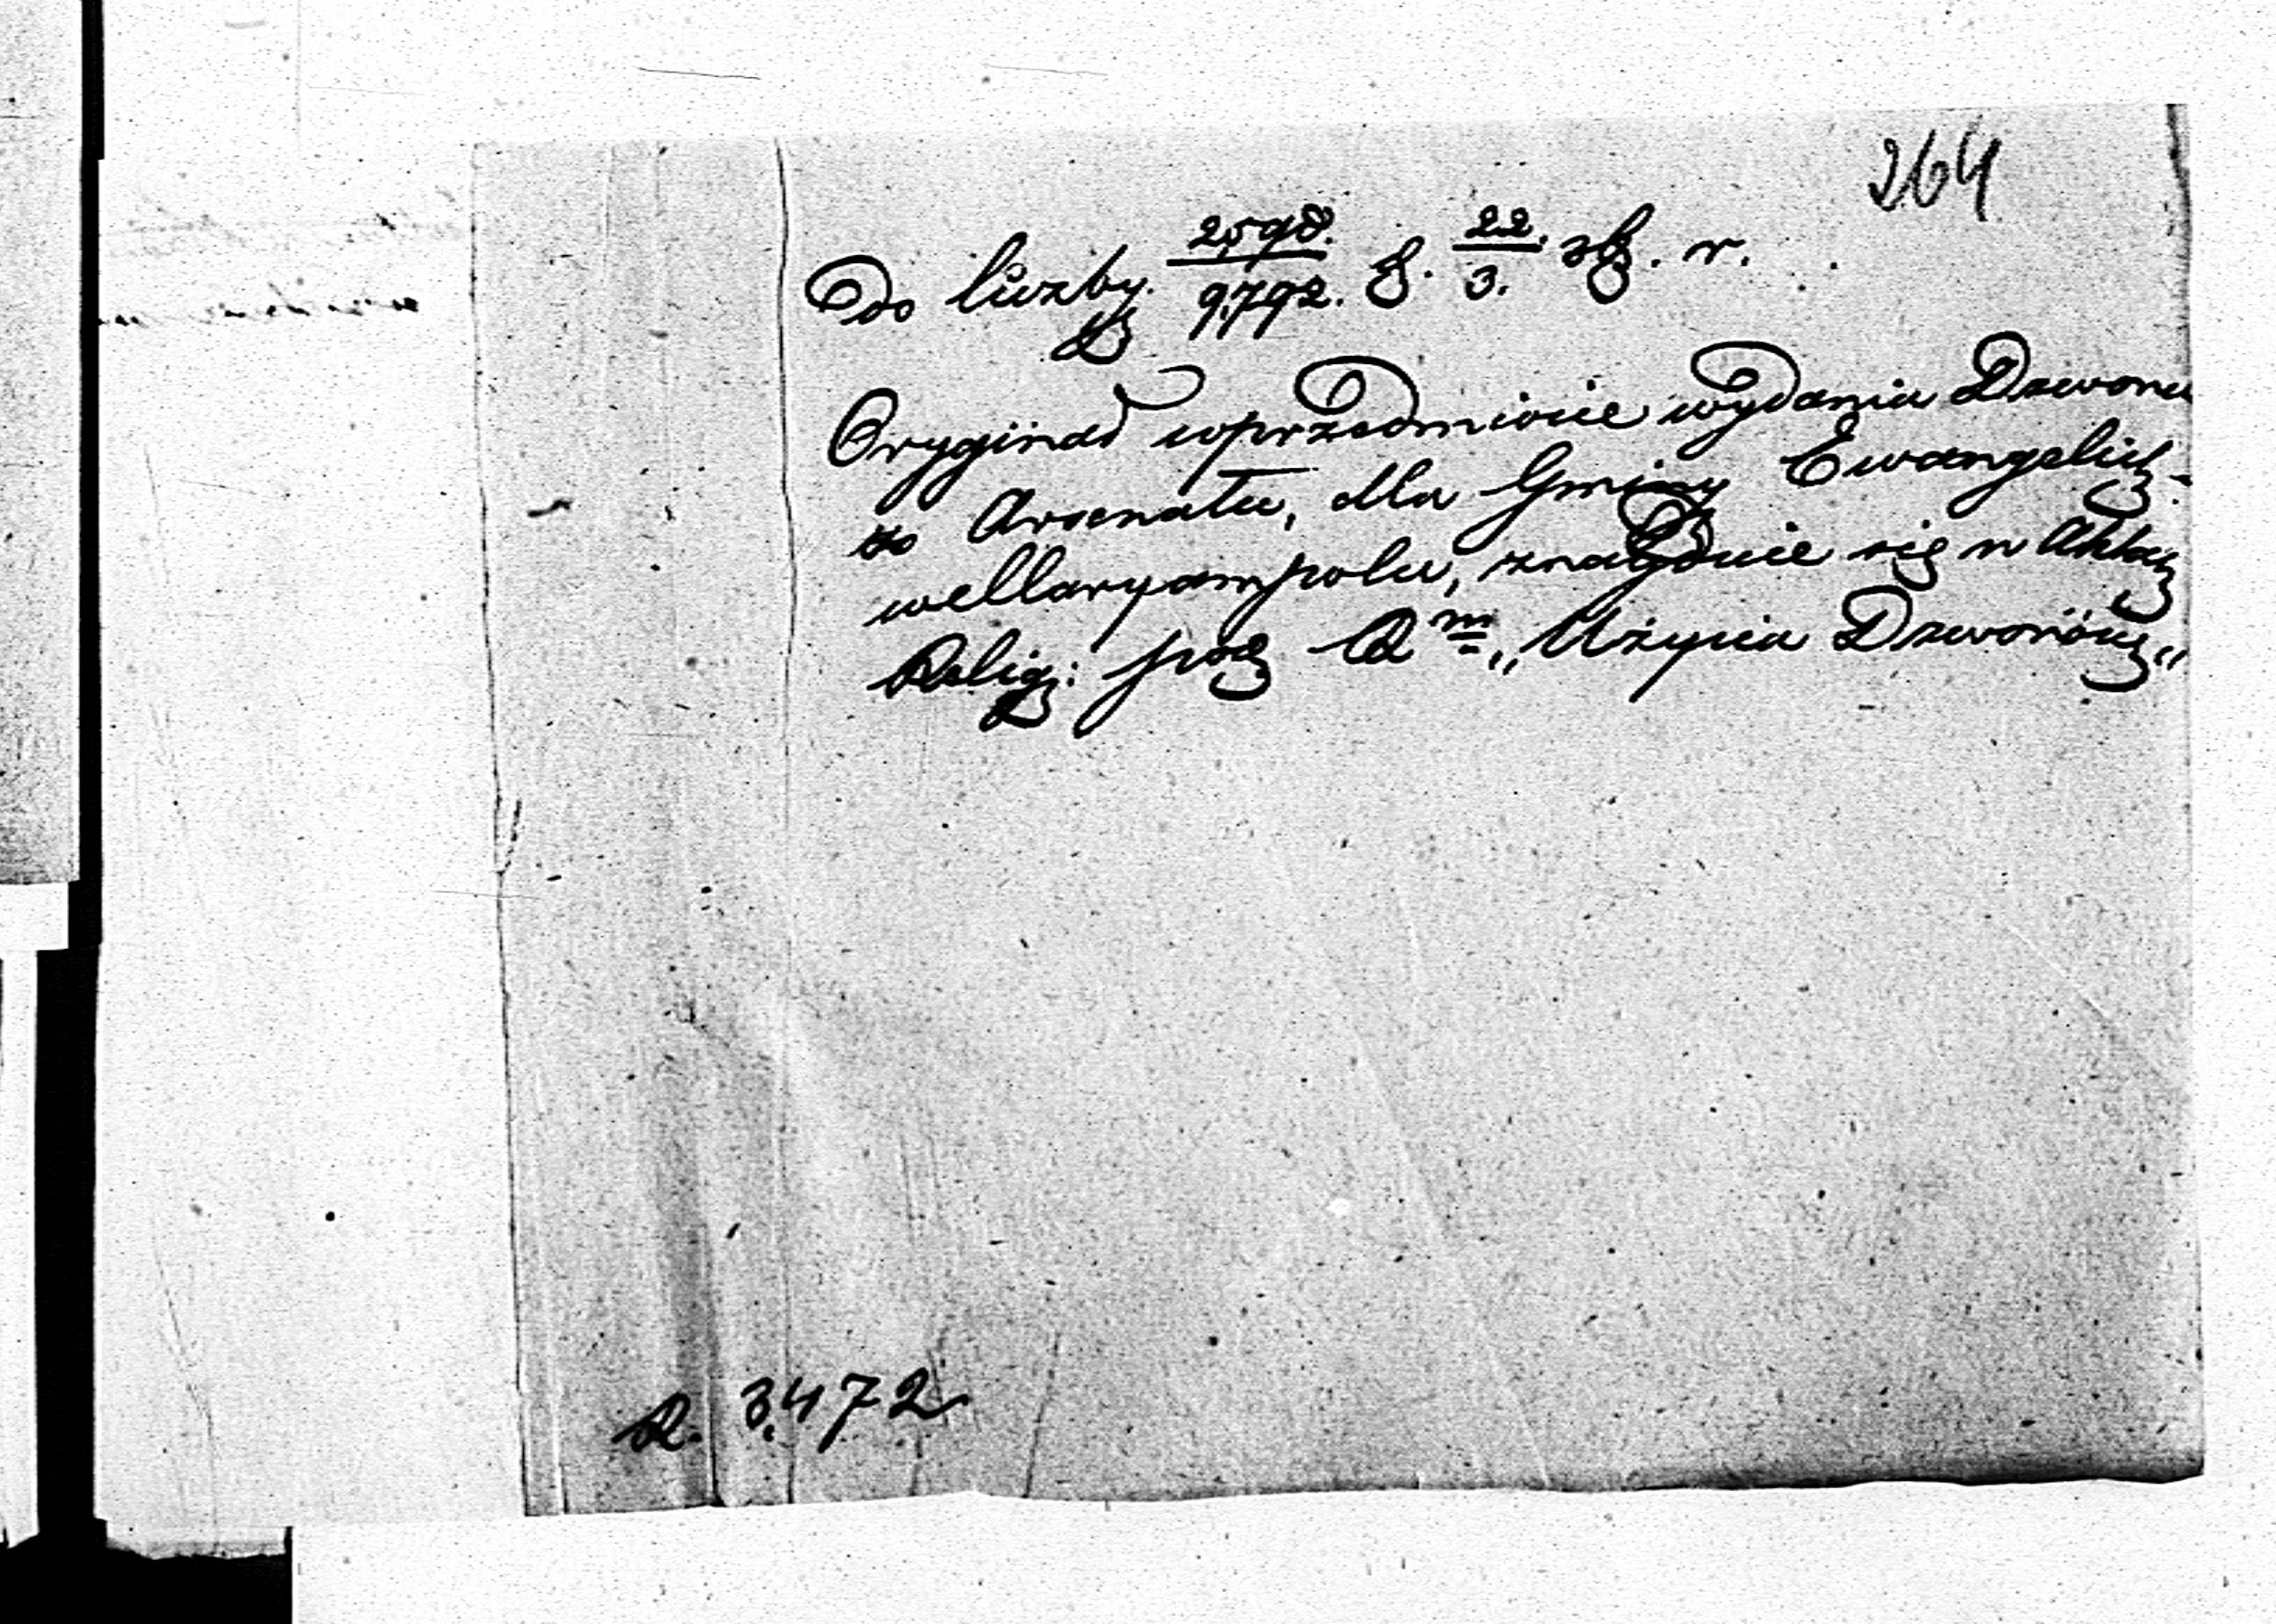 264
Do liczby 2598./9,792. d. 22./3. zb. r.
Oryginał wprzedmiocie wydania Dzwonu
ze Arsenału, dla Gminy Ewangelick:
wMaryampolu, znayduie się w Aktach
Relig: pod Rm „Użycia Dzwonów„
R. 3,472